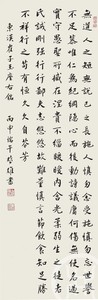 無道人之短無說己之長施人慎勿念受施慎勿忘世譽
不足慕唯仁為紀綱隱心而後動謗議庸何傷無使名過
實守愚聖所臧在涅貴不淄曖曖內含光柔弱生之徒老
氏誡剛強行行鄙夫志悠悠故難量慎言節飲食知足勝
不祥行之苟有恆久久自芬芳
東漢崔子玉座右銘 丙申